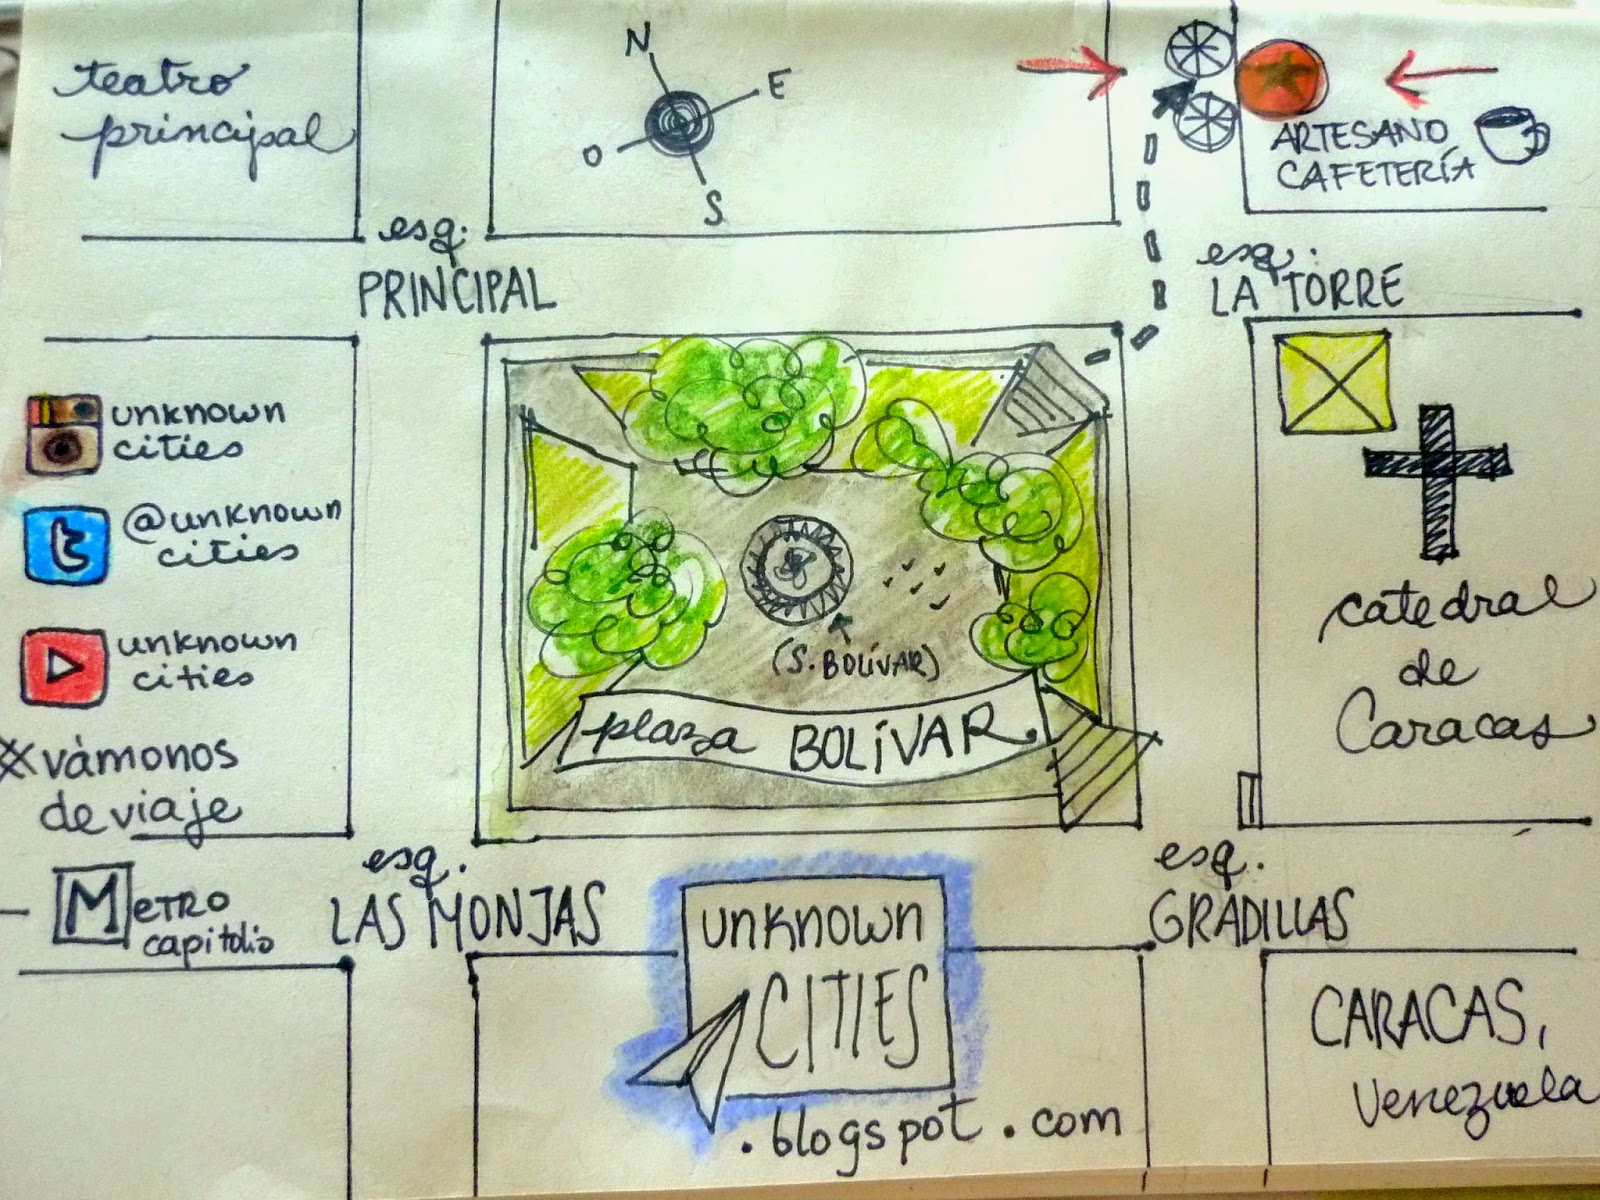 teatro
principal
N
E
O
S
ARTESANO
CAFETERÍA
esq.
PRINCIPAL
esq.
LA TORRE
unknown
cities
@unknown
cities
unknown
cities
vámonos
de viaje
(S. BOLÍVAR)
plaza BOLÍVAR
catedral
de
Caracas
esq.
LAS MONJAS
esq.
GRADILLAS
METRO
capitolio
unknown
CITIES
.blogspot.com
CARACAS,
Venezuela